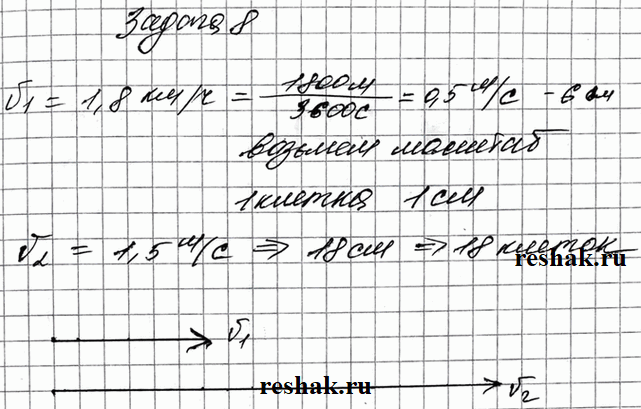 Задача 8
v₁ = 1,8 км/ч = 1800м/3600с = 0,5 м/с - 6 см
возьмем масштаб
1 клетка 1 см
v₂ = 1,5 м/с ⇒ 18 см ⇒ 18 клеток
reshak.ru
v₁
reshak.ru
v₂